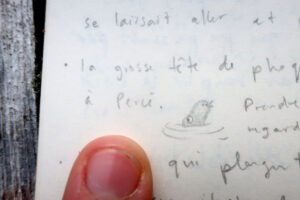 se laissait aller et
• la grosse tête de phoq
à Percé.
Prendre
regard
qui plongea